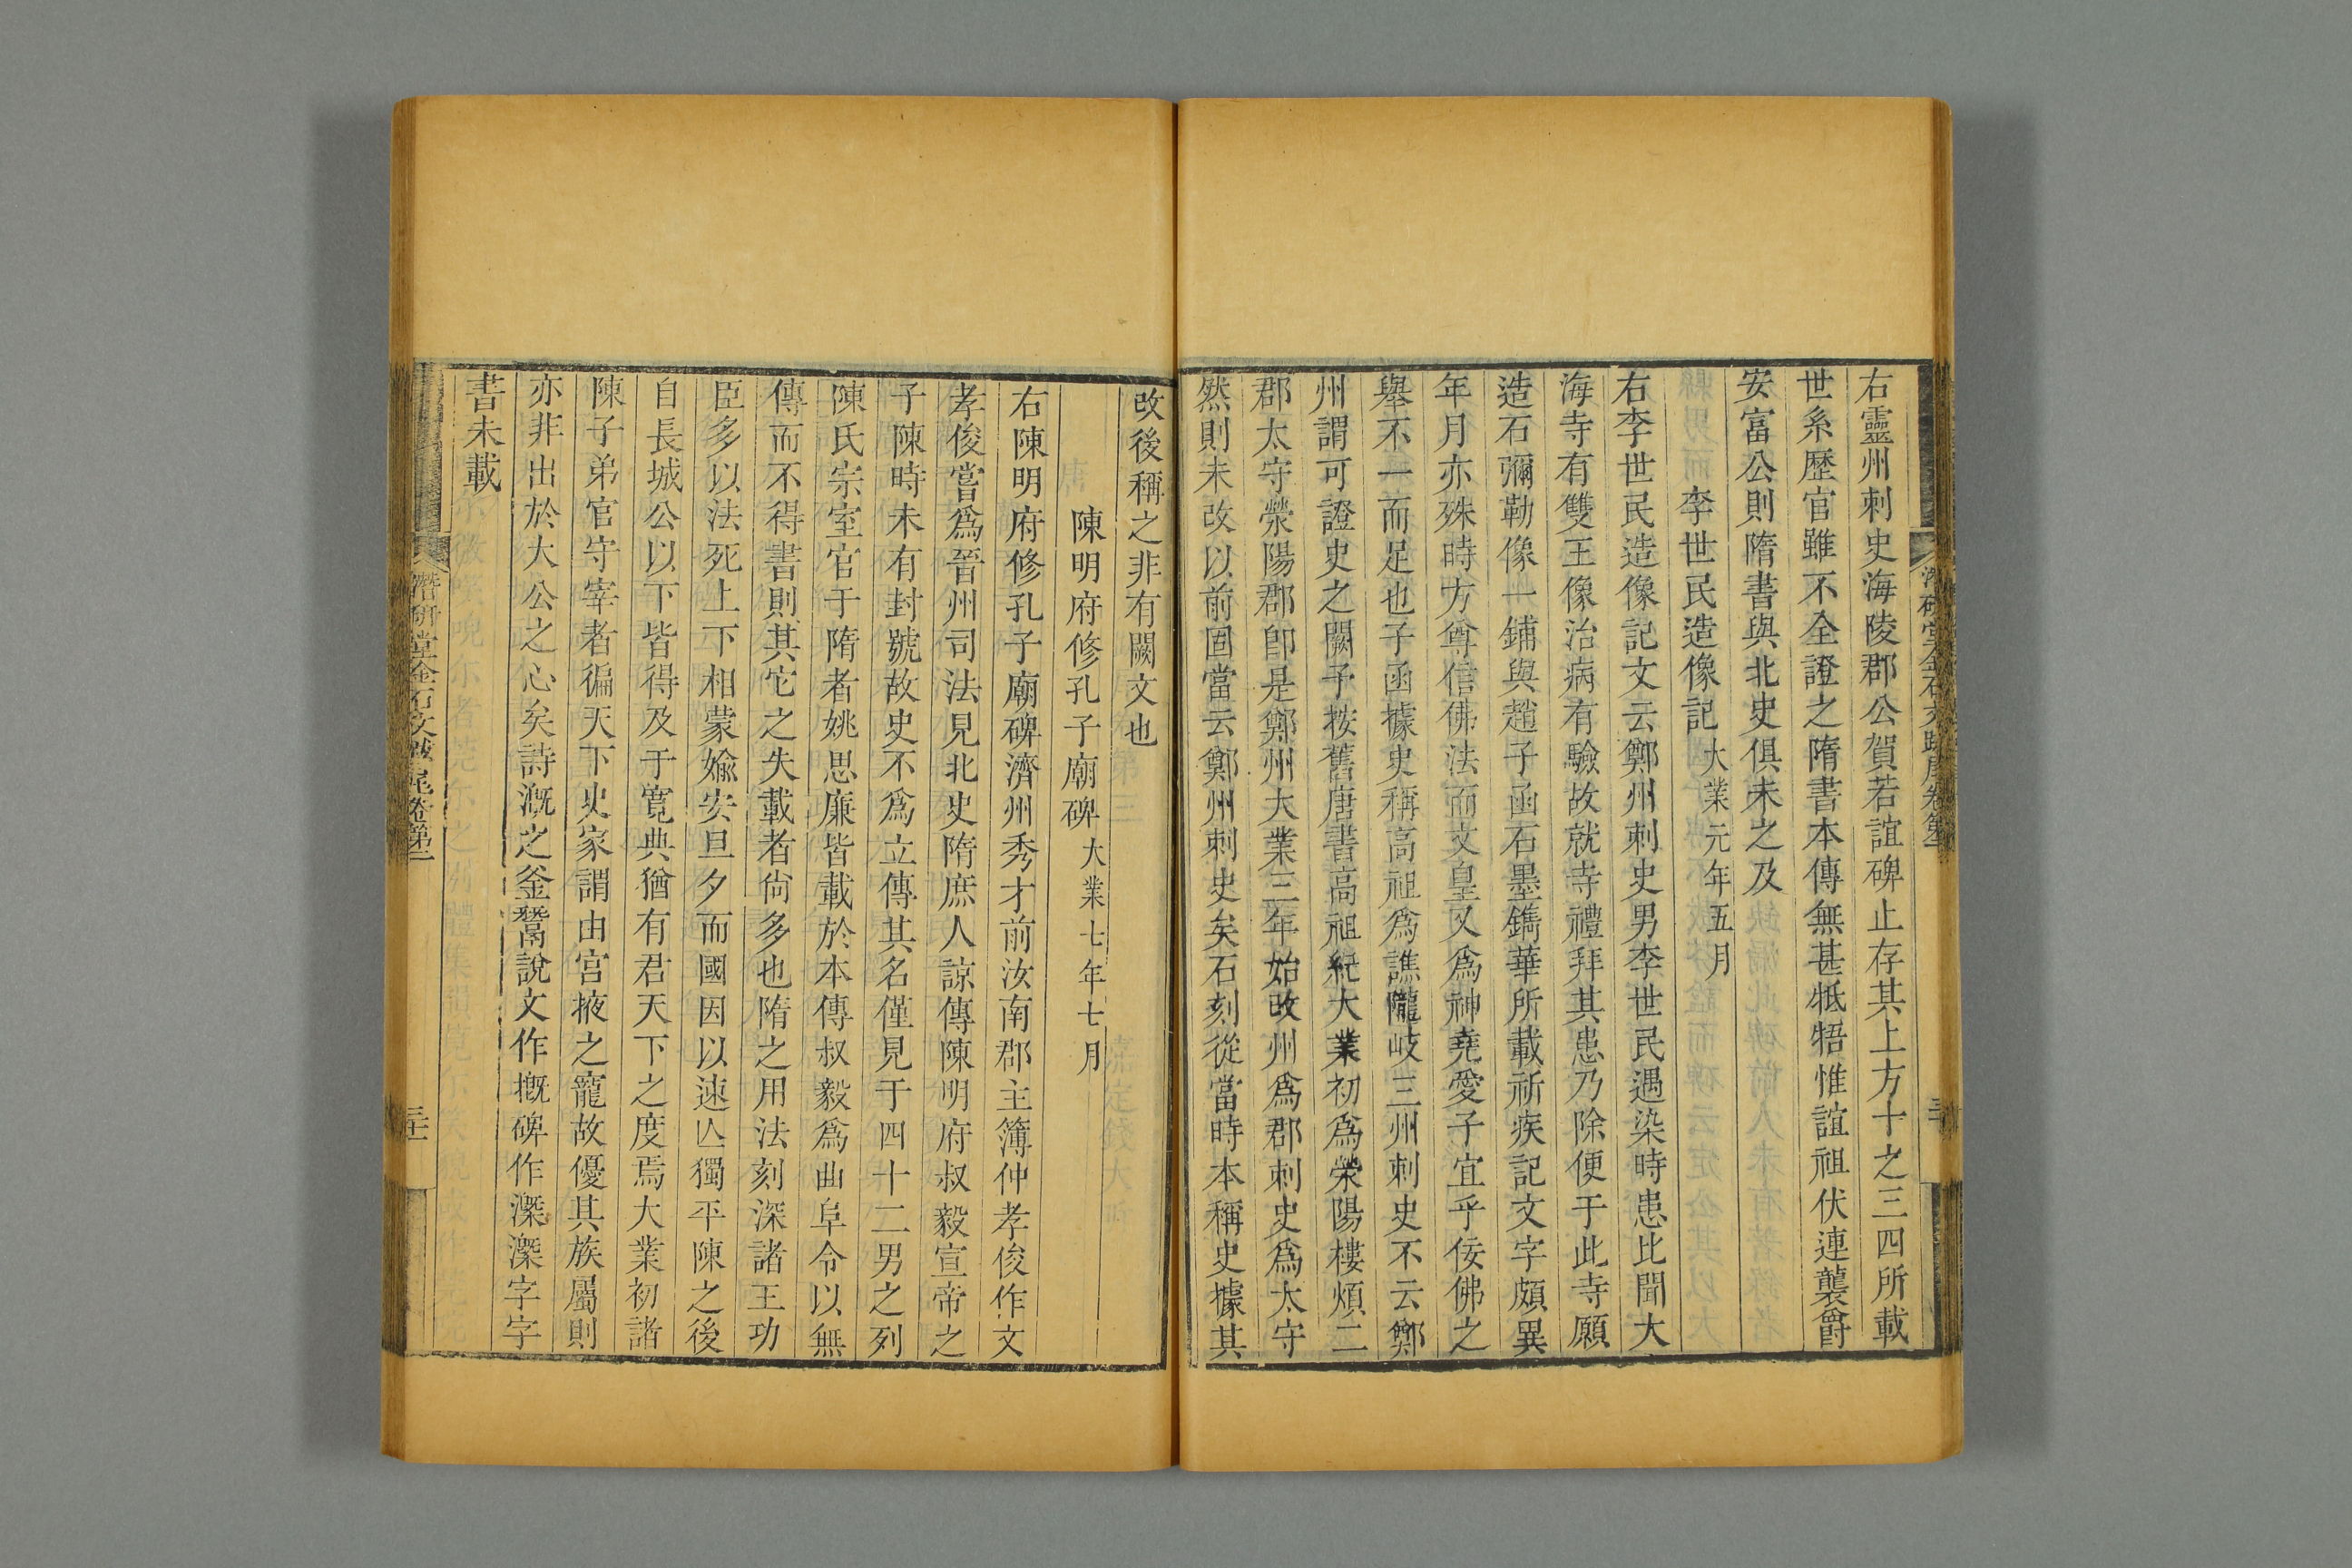 右靈州刺史海陵郡公賀若誼碑止存其上方十之三四所載
世系歷官雖不全證之隋書本傳無甚牴牾惟誼祖伏連襲爵
安富公則隋書與北史俱未之及
李世民造像記大業元年五月
右李世民造像記文云鄭州刺史男李世民遇染時患比聞大
海寺有雙王像治病有驗故就寺禮拜其患乃除便于此寺願
造石彌勒像一鋪與趙子函石墨鐫華所載祈疾記文字頗異
年月亦殊時方尊信佛法而文皇又爲神堯愛子宜乎佞佛之
舉不一而足也子函據史稱高祖爲譙隴岐三州刺史不云鄭
州謂可證史之闕予按舊唐書高祖紀大業初爲滎陽樓煩二
郡太守滎陽郡卽是鄭州大業三年始改州爲郡刺史爲太守
然則未改以前固當云鄭州刺史矣石刻從當時本稱史據其
潛研堂金石文跋尾卷第三
改後稱之非有闕文也
陳明府修孔子廟碑大業七年七月
右陳明府修孔子廟碑濟州秀才前汝南郡主簿仲孝俊作文
孝俊嘗爲晉州司法見北史隋庶人諒傳陳明府叔毅宣帝之
子陳時未有封號故史不爲立傳其名僅見于四十二男之列
陳氏宗室官于隋者姚思廉皆載於本傳叔毅爲曲阜令以無
傳而不得書則其它之失載者尙多也隋之用法刻深諸王功
臣多以法死上下相蒙媮安旦夕而國因以速亾獨平陳之後
自長城公以下皆得及于寬典猶有君天下之度焉大業初諸
陳子弟官守宰者徧天下史家謂由宮掖之寵故優其族屬則
亦非出於大公之心矣詩漑之釜鬵說文作摡碑作灤灤字字
書未載
潛研堂金石文跋尾卷第三